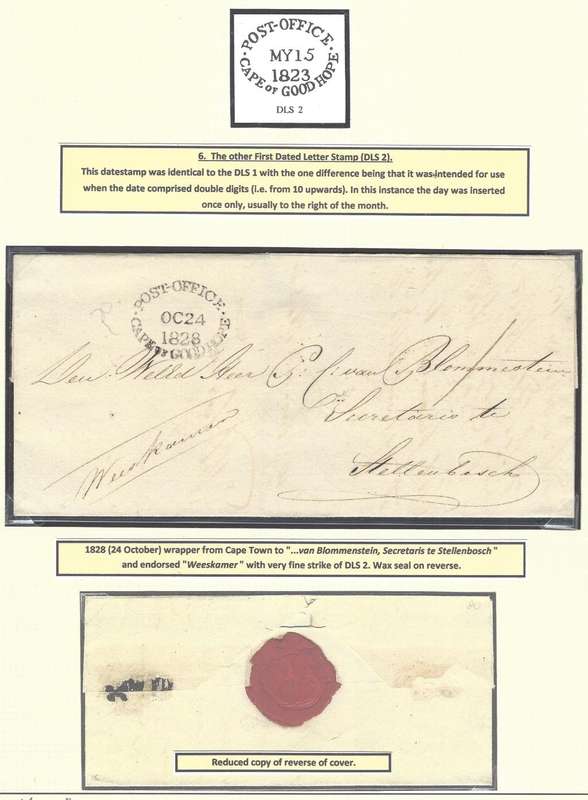 · POST-OFFICE ·
MY15
1823
CAPE OF GOOD HOPE
DLS 2
6. The other First Dated Letter Stamp (DLS 2).
This datestamp was identical to the DLS 1 with the one difference being that it was intended for use
when the date comprised double digits (i.e. from 10 upwards). In this instance the day was inserted
once only, usually to the right of the month.
· POST-OFFICE ·
OC24
1828
CAPE OF GOOD HOPE
Den Heer van Blommestein
Secretaris te
Stellenbosch
Weeskamer
1828 (24 October) wrapper from Cape Town to "...van Blommenstein, Secretaris te Stellenbosch"
and endorsed "Weeskamer" with very fine strike of DLS 2. Wax seal on reverse.
80
Reduced copy of reverse of cover.